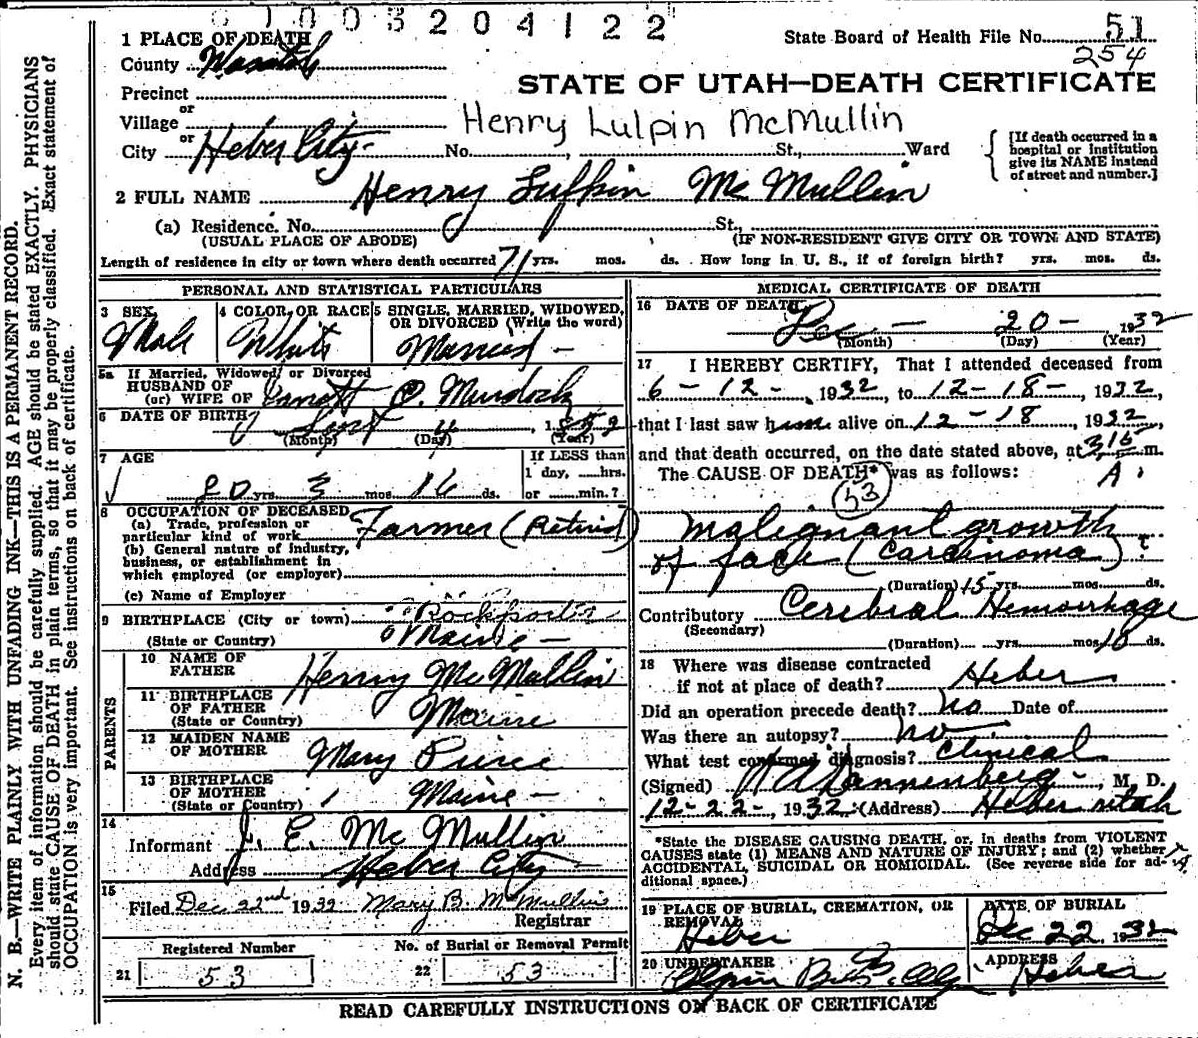 61003204122
1 PLACE OF DEATH
State Board of Health File No. 51
254
County Wasatch
STATE OF UTAH—DEATH CERTIFICATE
Precinct
or
Village
Henry Lulpin McMullin
or
City Heber City No. , St., Ward
[If death occurred in a hospital or institution give its NAME instead of street and number.]
2 FULL NAME Henry Lufkin McMullin
(a) Residence. No. St.,
(USUAL PLACE OF ABODE) (IF NON-RESIDENT GIVE CITY OR TOWN AND STATE)
Length of residence in city or town where death occurred 71 yrs. mos. ds. How long in U. S., if of foreign birth? yrs. mos. ds.
PERSONAL AND STATISTICAL PARTICULARS
3 SEX
Male
4 COLOR OR RACE
White
5 SINGLE, MARRIED, WIDOWED, OR DIVORCED (Write the word)
Married -
5a If Married, Widowed or Divorced
HUSBAND OF
(or) WIFE OF C. Murdoch
6 DATE OF BIRTH Sept 4 1852
(Month) (Day) (Year)
7 AGE
80 yrs. 3 mos. 16 ds.
If LESS than
1 day, hrs.
or min.?
8 OCCUPATION OF DECEASED
(a) Trade, profession or particular kind of work Farmer (Retired)
(b) General nature of industry, business, or establishment in which employed (or employer)
(c) Name of Employer
9 BIRTHPLACE (City or town)
(State or Country) Maine -
PARENTS
10 NAME OF FATHER Henry McMullin
11 BIRTHPLACE OF FATHER (State or Country) Maine
12 MAIDEN NAME OF MOTHER Mary Pierce
13 BIRTHPLACE OF MOTHER (State or Country) Maine -
14
Informant J. E. McMullin
Address Heber City
15
Filed Dec 22nd 1932 Mary B. McMullin
Registrar
Registered Number No. of Burial or Removal Permit
21 53 22 53
MEDICAL CERTIFICATE OF DEATH
16 DATE OF DEATH
Dec - 20 - 1932
(Month) (Day) (Year)
17 I HEREBY CERTIFY, That I attended deceased from
6 - 12 - , 1932, to 12 - 18 - , 1932,
that I last saw him alive on 12 - 18 , 1932,
and that death occurred, on the date stated above, at 315 m.
The CAUSE OF DEATH* was as follows: A.
53
Malignant growth
of face (Carcinoma)
(Duration) 15 yrs. mos. ds.
Contributory Cerebral Hemorrhage
(Secondary)
(Duration) yrs. mos. 18 ds.
18 Where was disease contracted
if not at place of death? Heber
Did an operation precede death? no Date of
Was there an autopsy? no
What test confirmed diagnosis? Clinical
(Signed) Dannenberg - , M. D.
12 - 22 - , 1932 (Address) Heber Utah
*State the DISEASE CAUSING DEATH, or, in deaths from VIOLENT
CAUSES state (1) MEANS AND NATURE OF INJURY; and (2) whether
ACCIDENTAL, SUICIDAL OR HOMICIDAL. (See reverse side for additional space.)
19 PLACE OF BURIAL, CREMATION, OR REMOVAL
Heber
DATE OF BURIAL
Dec 22, 1932
20 UNDERTAKER
ADDRESS
Heber
READ CAREFULLY INSTRUCTIONS ON BACK OF CERTIFICATE
N. B.—WRITE PLAINLY WITH UNFADING INK—THIS IS A PERMANENT RECORD.
Every item of information should be carefully supplied. AGE should be stated EXACTLY. PHYSICIANS
should state CAUSE OF DEATH in plain terms, so that it may be properly classified. Exact statement of
OCCUPATION is very important. See instructions on back of certificate.